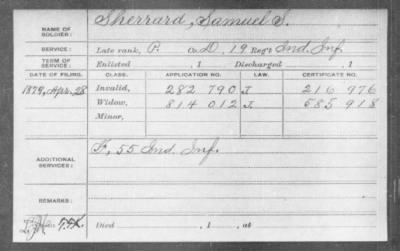 NAME OF SOLDIER: Sherrard, Samuel S.
SERVICE: Late rank, P. Co. D, 19 Reg't Ind. Inf.
TERM OF SERVICE: Enlisted , 1 Discharged , 1
DATE OF FILING. CLASS. APPLICATION NO. LAW. CERTIFICATE NO.
1879, Apr. 28 Invalid, 282 790 J 216 976
Widow, 814 012 J 585 918
Minor,
ADDITIONAL SERVICES: F, 55 Ind. Inf.
REMARKS:
Died , 1 , at